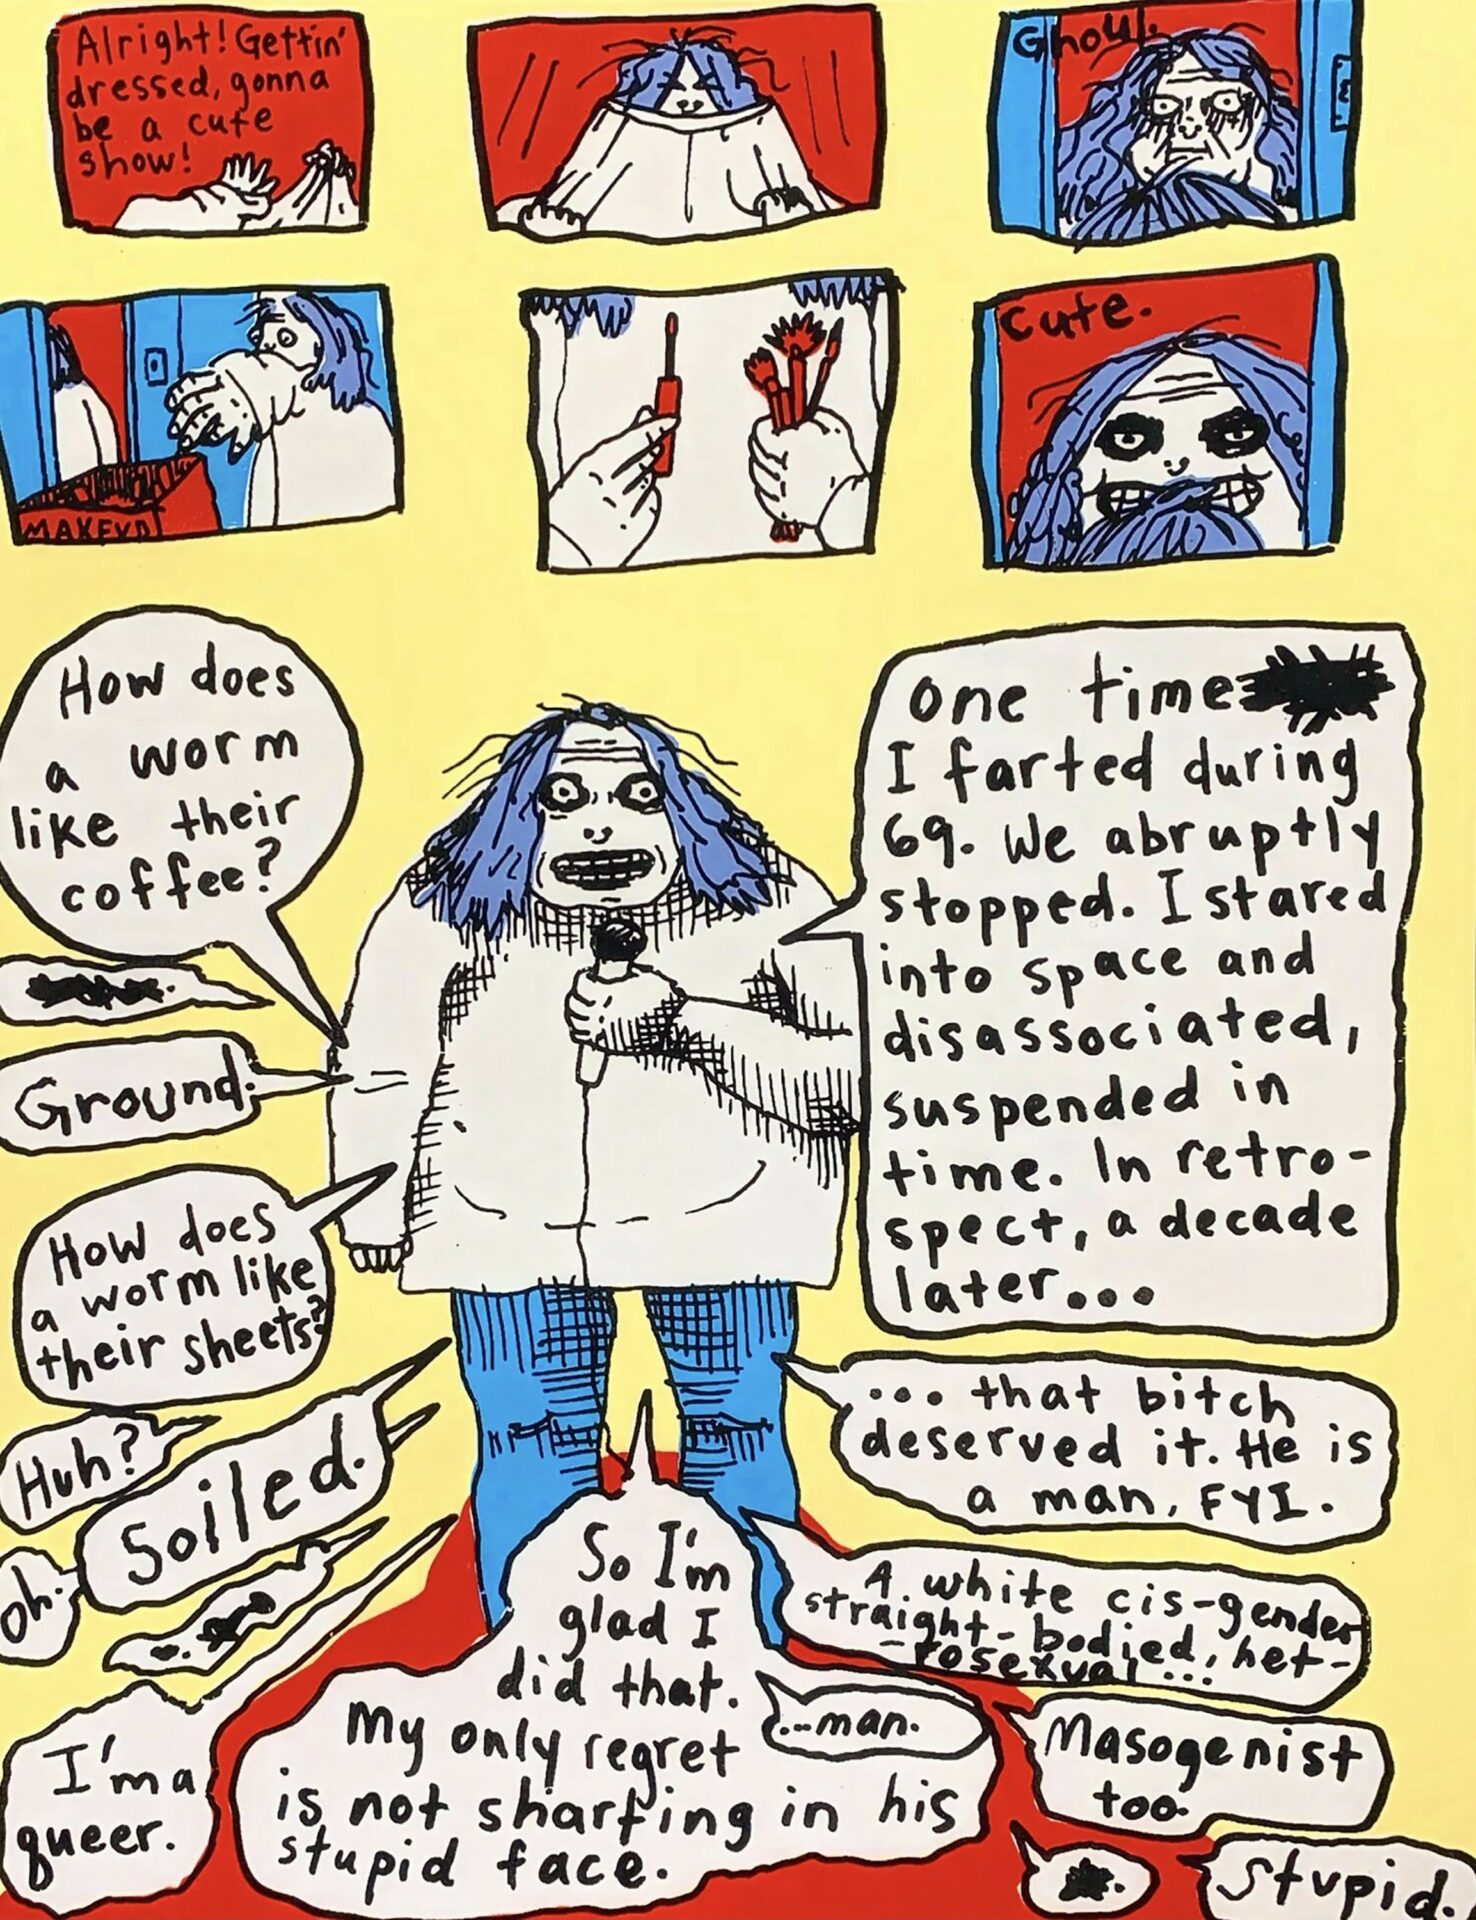 Alright! Gettin'
dressed, gonna
be a cute
show!
Ghoul.
MAKEUP
Cute.
How does
a worm
like their
coffee?
Ground.
How does
a worm like
their sheets?
Huh?
Soiled.
Oh.
I'm a
queer.
One time
I farted during
69. We abruptly
stopped. I stared
into space and
disassociated,
suspended in
time. In retro-
spect, a decade
later...
... that bitch
deserved it. He is
a man, FYI.
A white cis-gender
straight-bodied, het-
-rosexual...
...man.
Masogenist
too.
Stupid.
So I'm
glad I
did that.
My only regret
is not sharting in his
stupid face.